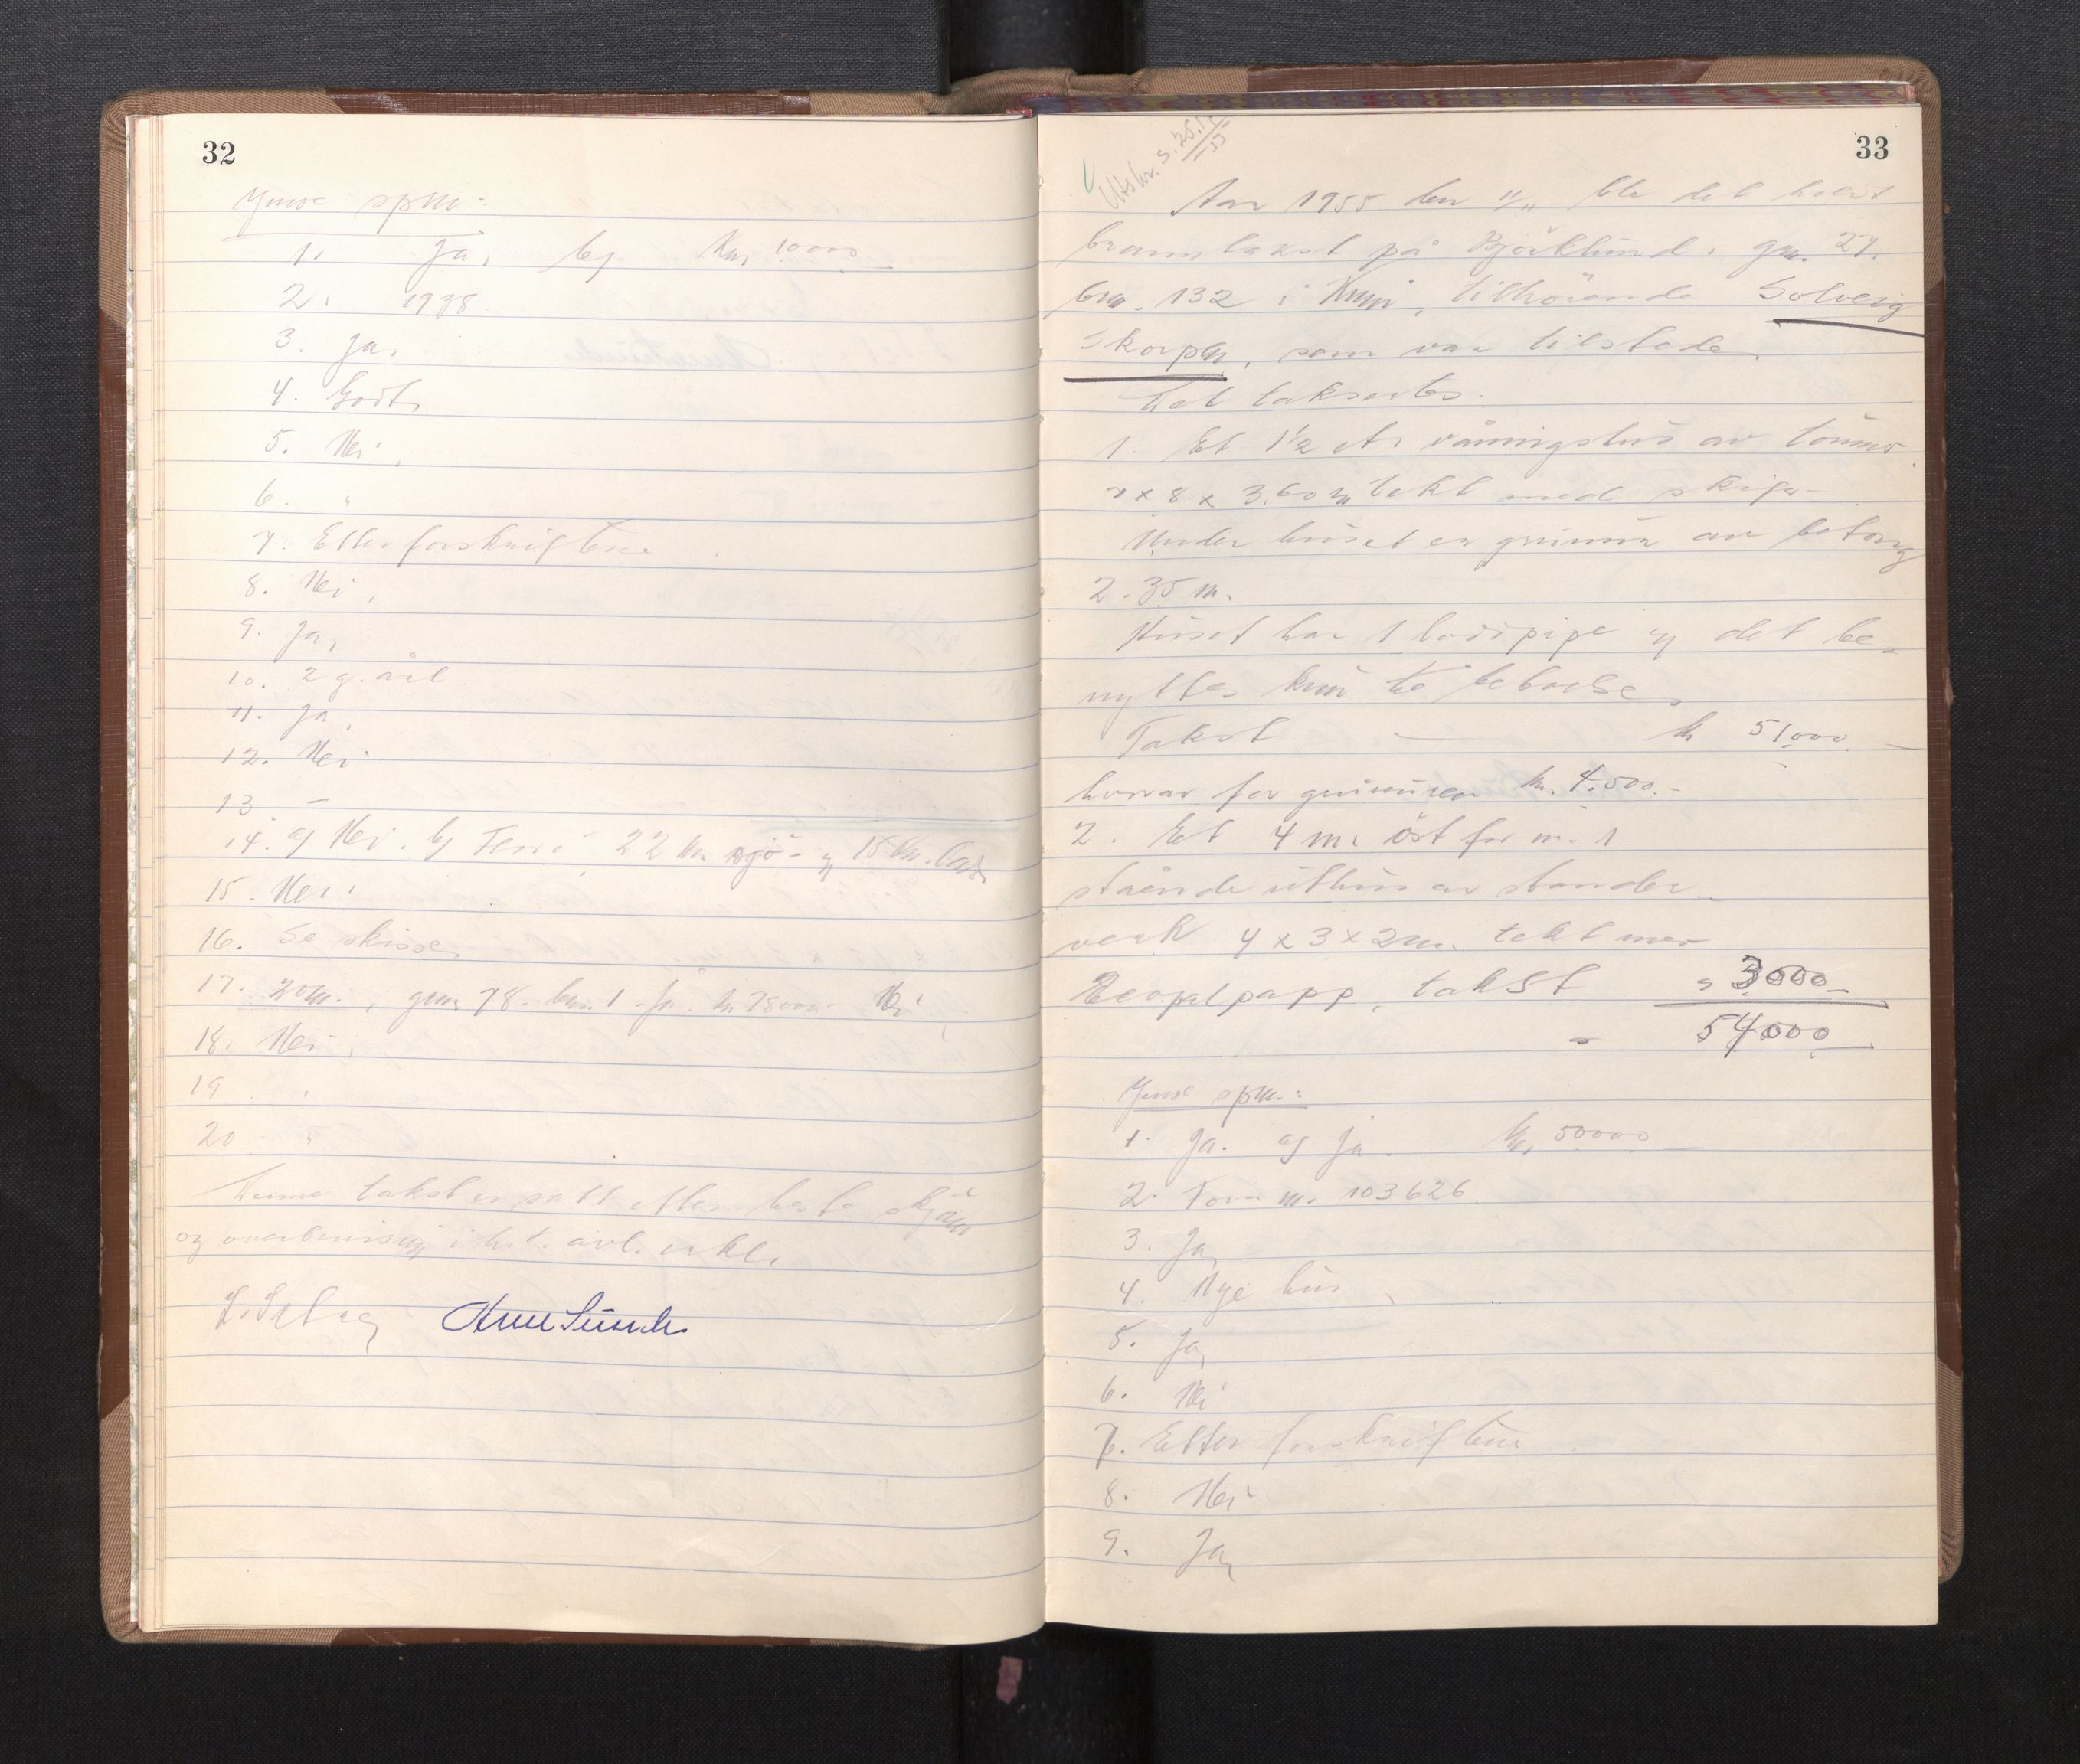 32
Ymse spm:
1. Ja, b) Kr. 10000
2. 1938.
3. Ja.
4. Godt,
5. Nei,
6. "
7. Etter forskriftene
8. Nei,
9. Ja,
10. 2 g. årl
11. Ja,
12. Nei
13 –
14. a) Nei. b) 22 km. sjö- og 15 km. land
15. Nei.
16. Se skisse
17. 20 m., gnr. 78. bnr. 1. Ja. kr. 78000.- Nei
18. Nei,
19 "
20 "
Denne takst er satt etter beste skjönn
og overbevisning i h.t. avl. erkl.
33
Utskr. s. 25.
Aar 1955 den 11/11 ble det holdt
branntakst på Björklund. gnr. 27.
bnr. 132 i tilhörende Solveig
Skorpen, som var tilstede.
Det takseres.
1. Et 1½ et. våningshus av tömmer
7 x 8 x 3.60 m tekt med skifer
Under huset er grunnmur av betong
2.35 m.
Huset har 1 hovedpipe og det be-
nyttes kun til beboelse,
Takst – kr 51.000.–
hvorav for grunnmuren kr. 4.500.-
2. Et 4 m. öst for nr. 1
stående uthus av stander-
verk 4 x 3 x 2 m. tekt med
takst " 3000.-
" 54000
Ymse spm.:
1. Ja. a) Ja. Kr. 50000
2. nr. 103626
3. Ja,
4. Nye hus
5. Ja,
6. Nei
7. Etter forskriftene
8. Nei
9. Ja,